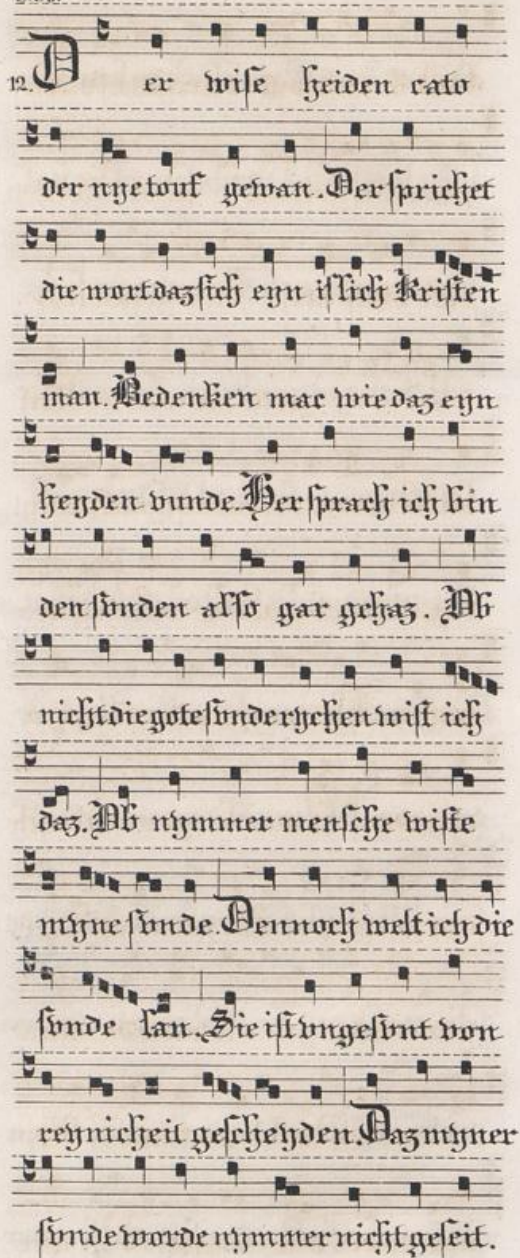 12. Der wise heiden cato
der nye touf gewan. Der sprichet
die wort daz sich eyn islich Kristen
man. Bedenken mac wie daz eyn
heyden vunde. Her sprach ich bin
den sunden also gar gehaz. Ob
nicht die gote sunde rychen wist ich
daz. Ob nymmer mensche wiste
myne sunde. Dennoch welt ich die
sunde lan. Sie ist ungesunt von
reynicheit gescheyden. Daz myner
sunde worde nymmer nicht geseit.